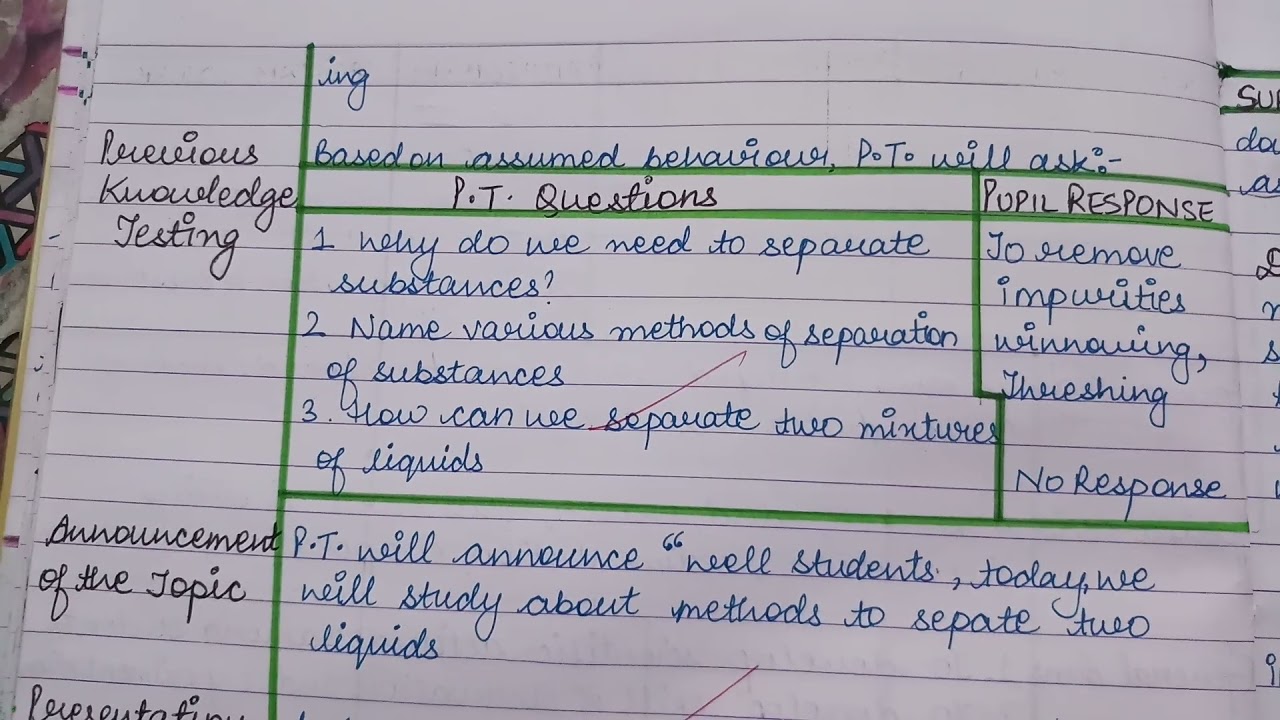 ing
Previous
Knowledge
Testing
Based on assumed behaviour, P.T. will ask:-
P.T. Questions
PUPIL RESPONSE
1 why do we need to separate
substances?
To remove
impurities
2 Name various methods of separation
of substances
winnowing,
Threshing
3. How can we separate two mixtures
of liquids
No Response
Announcement
of the Topic
P.T. will announce “well students, today, we
will study about methods to sepate two
liquids